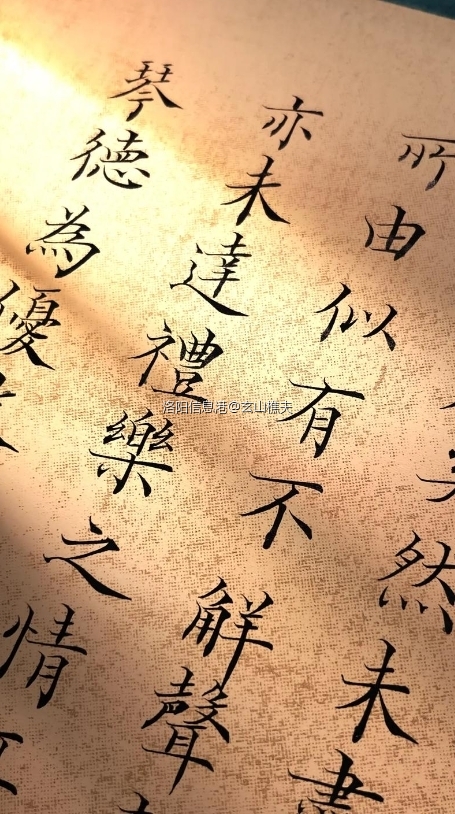 然未盡
所由似有不觧聲
亦未達禮樂之情
琴徳為優
洛阳信息港@玄山樵夫